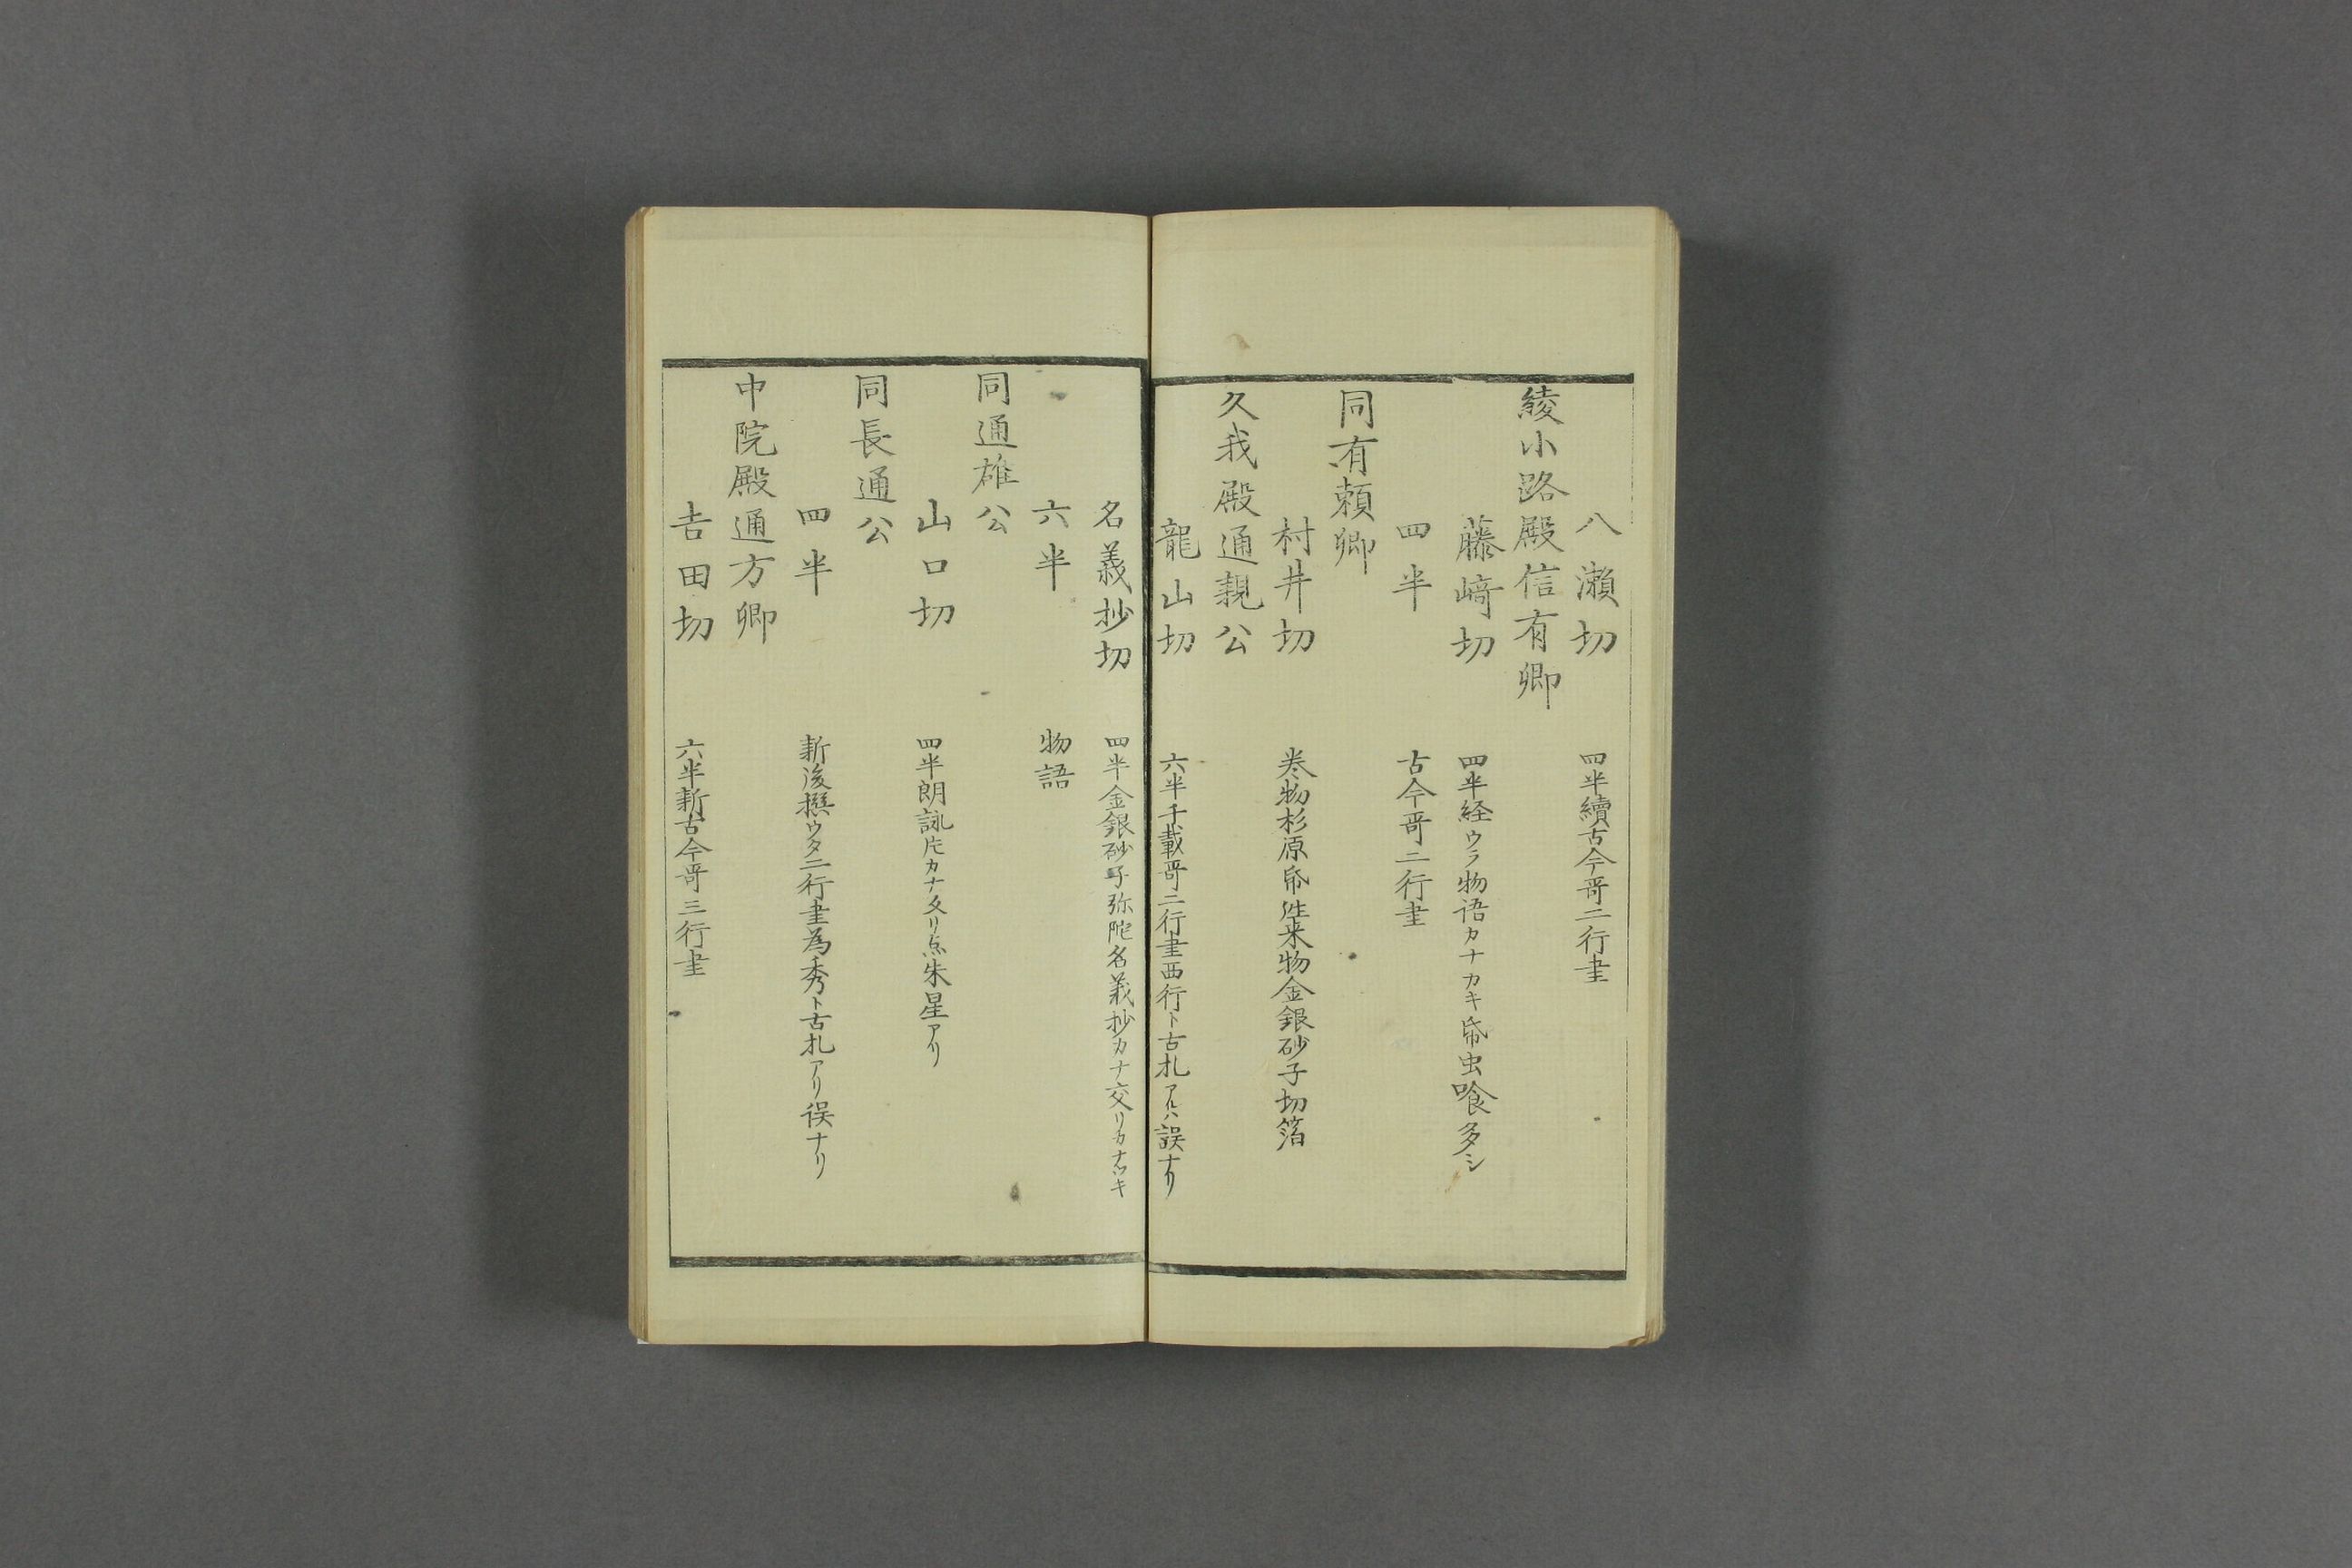 八瀬切 四半續古今哥二行書
綾小路殿信有卿
藤﨑切 四半経ウラ物語カナカキ帋虫喰多シ
四半 古今哥二行書
同有頼卿
村井切 巻物杉原帋往来物金銀砂子切箔
久我殿通親公
龍山切 六半千載哥二行書西行ト古札アルハ誤ナリ
名義抄切 四半金銀砂子弥陀名義抄カナ交リカナツキ
六半 物語
同通雄公
山口切 四半朗詠片カナ交リ点朱星アリ
同長通公
四半 新後撰ウタ二行書為秀ト古札アリ誤ナリ
中院殿通方卿
吉田切 六半新古今哥三行書